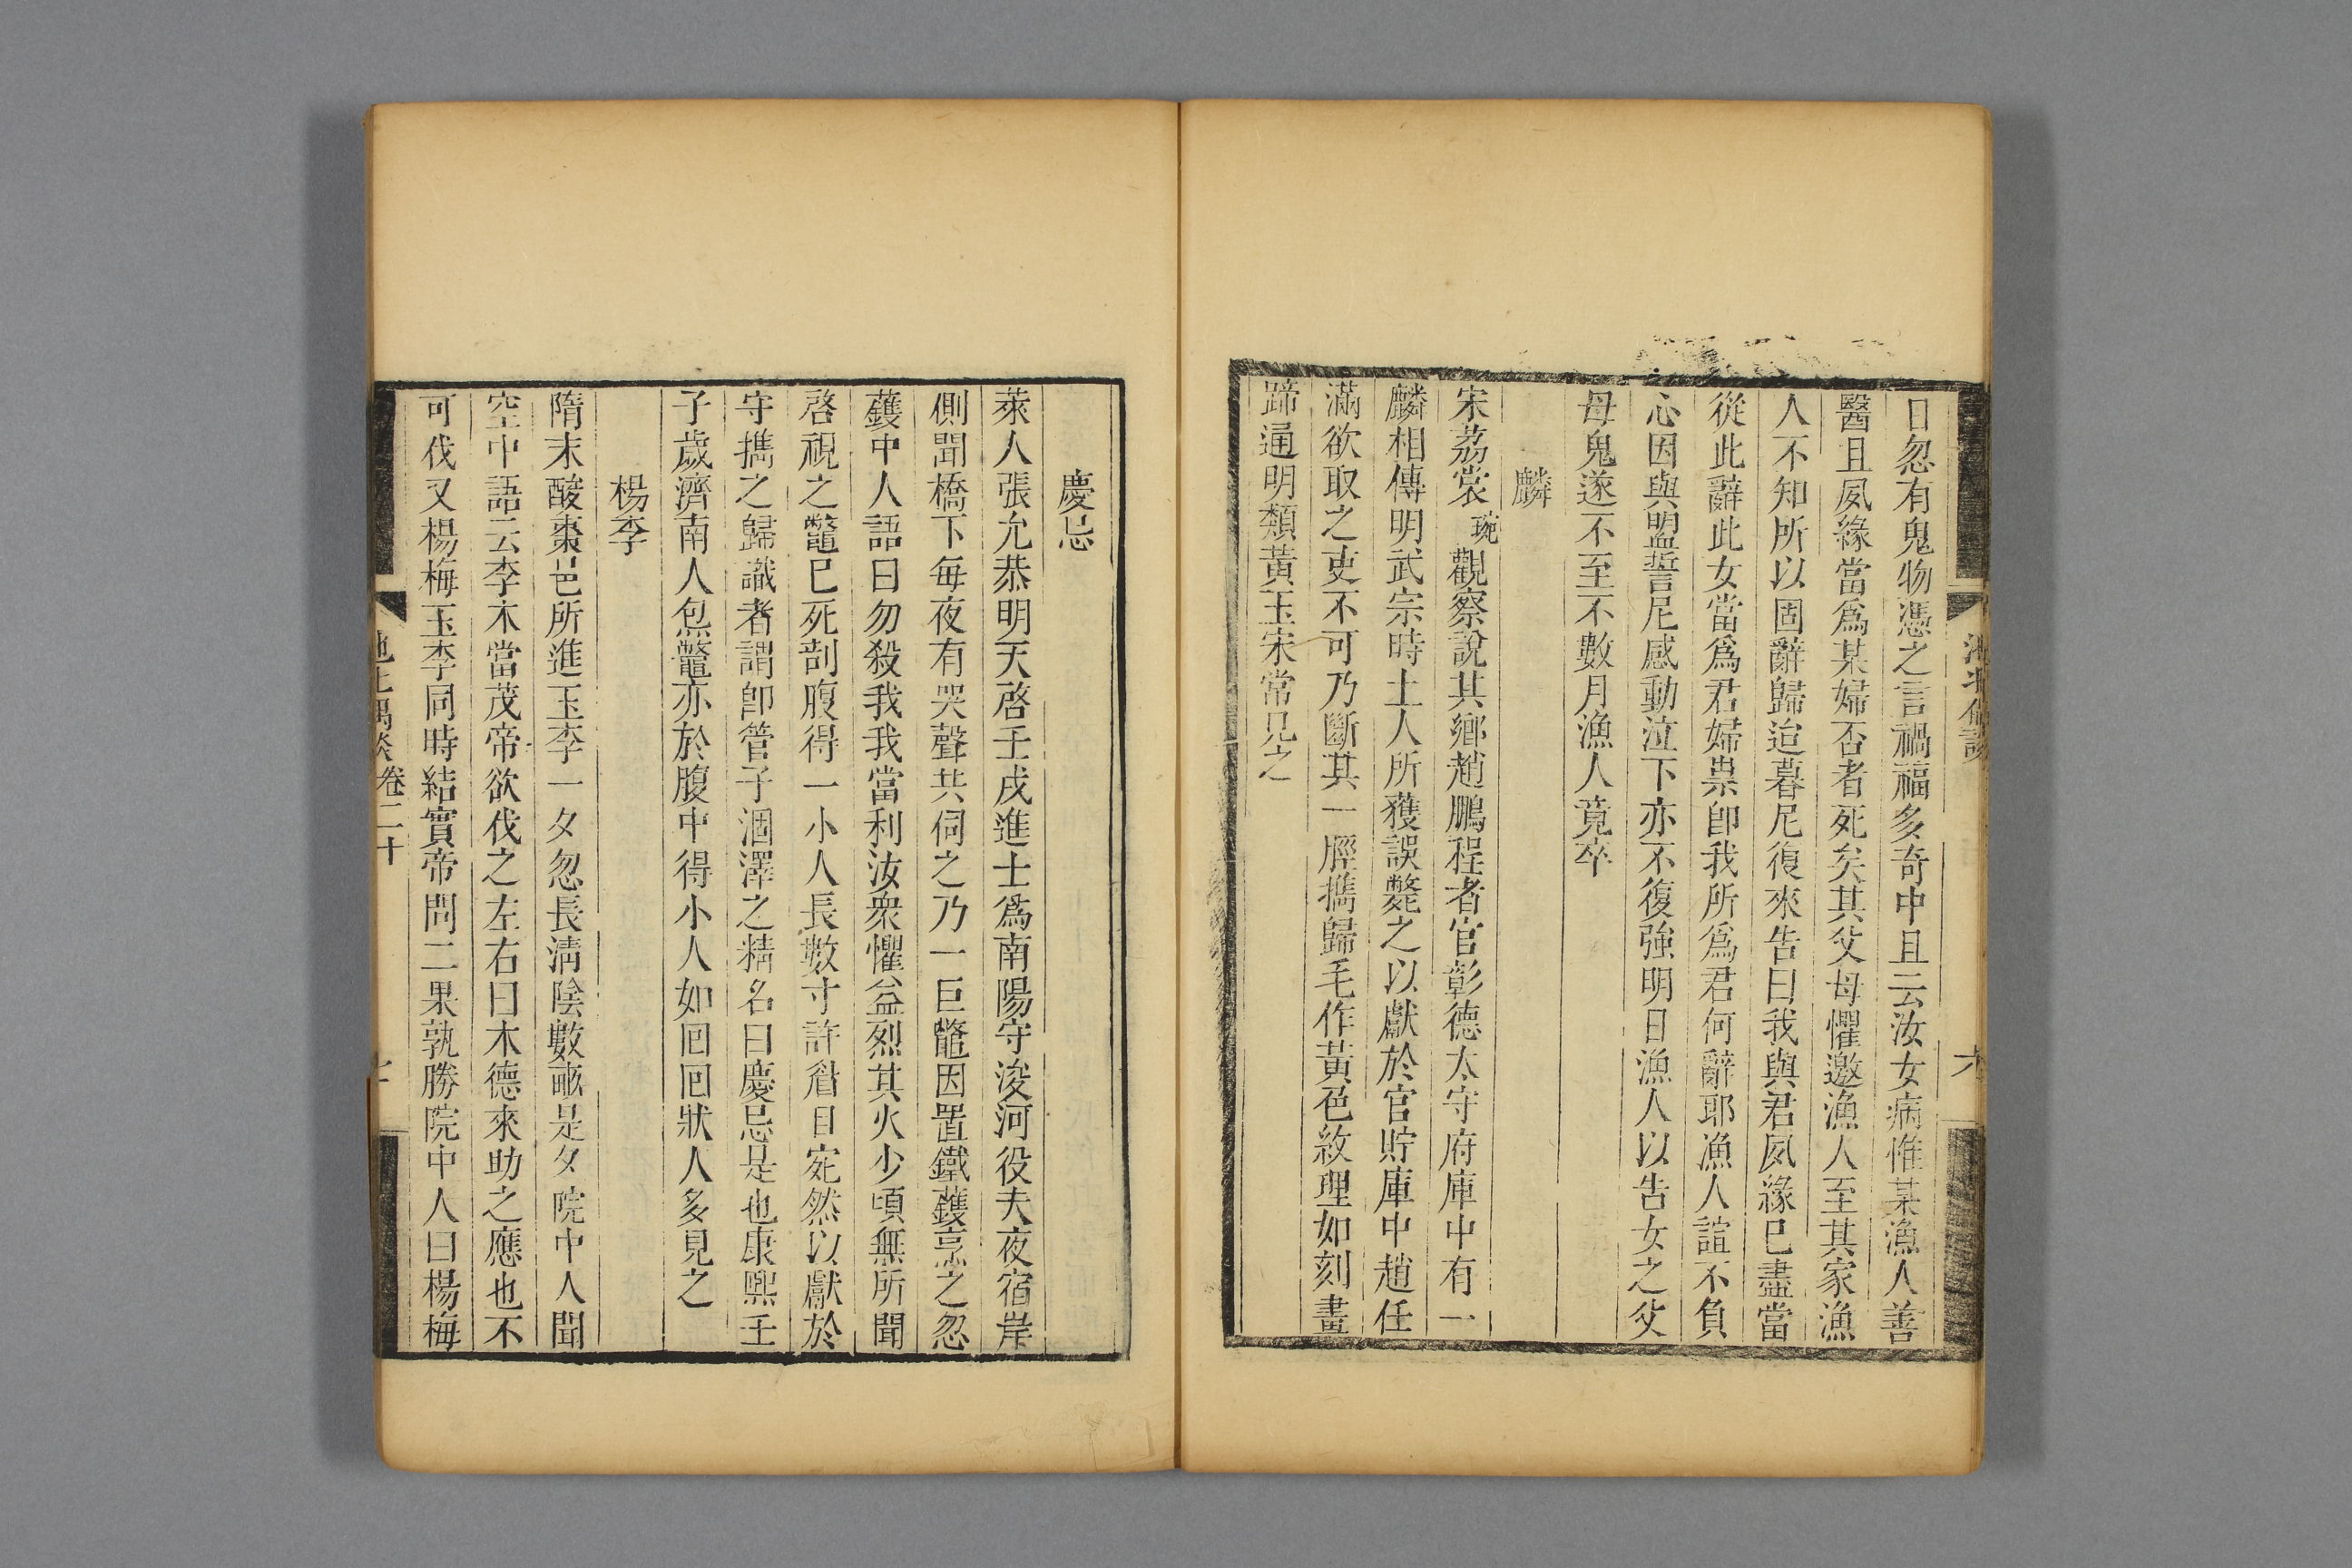 日忽有鬼物憑之言禍福多奇中且云汝女病惟某漁人善
醫且夙緣當爲某婦否者死矣其父母懼邀漁人至其家漁
人不知所以固辭歸迨暮尼復來告曰我與君夙緣已盡當
從此辭此女當爲君婦祟卽我所爲君何辭耶漁人誼不負
心因與盟誓尼感動泣下亦不復強明日漁人以告女之父
母鬼遂不至不數月漁人竟卒
麟
宋荔裳琬觀察說其鄉趙鵬程者官彰德太守府庫中有一
麟相傳明武宗時土人所獲誤斃之以獻於官貯庫中趙任
滿欲取之吏不可乃斷其一脛攜歸毛作黃色紋理如刻畫
蹄通明類黃玉宋常見之
慶忌
萊人張允恭明天啓壬戌進士爲南陽守浚河役夫夜宿岸
側聞橋下每夜有哭聲共伺之乃一巨鼈因置鐵鑊烹之忽
鑊中人語曰勿殺我我當利汝衆懼益烈其火少頃無所聞
啓視之鼈已死剖腹得一小人長數寸許眉目宛然以獻於
守攜之歸識者謂卽管子涸澤之精名曰慶忌是也康熙壬
子歲濟南人炰鼈亦於腹中得小人如囘囘狀人多見之
楊李
隋末酸棗邑所進玉李一夕忽長淸陰數畝是夕院中人聞
空中語云李木當茂帝欲伐之左右曰木德來助之應也不
可伐又楊梅玉李同時結實帝問二果孰勝院中人曰楊梅
池北偶談 卷二十